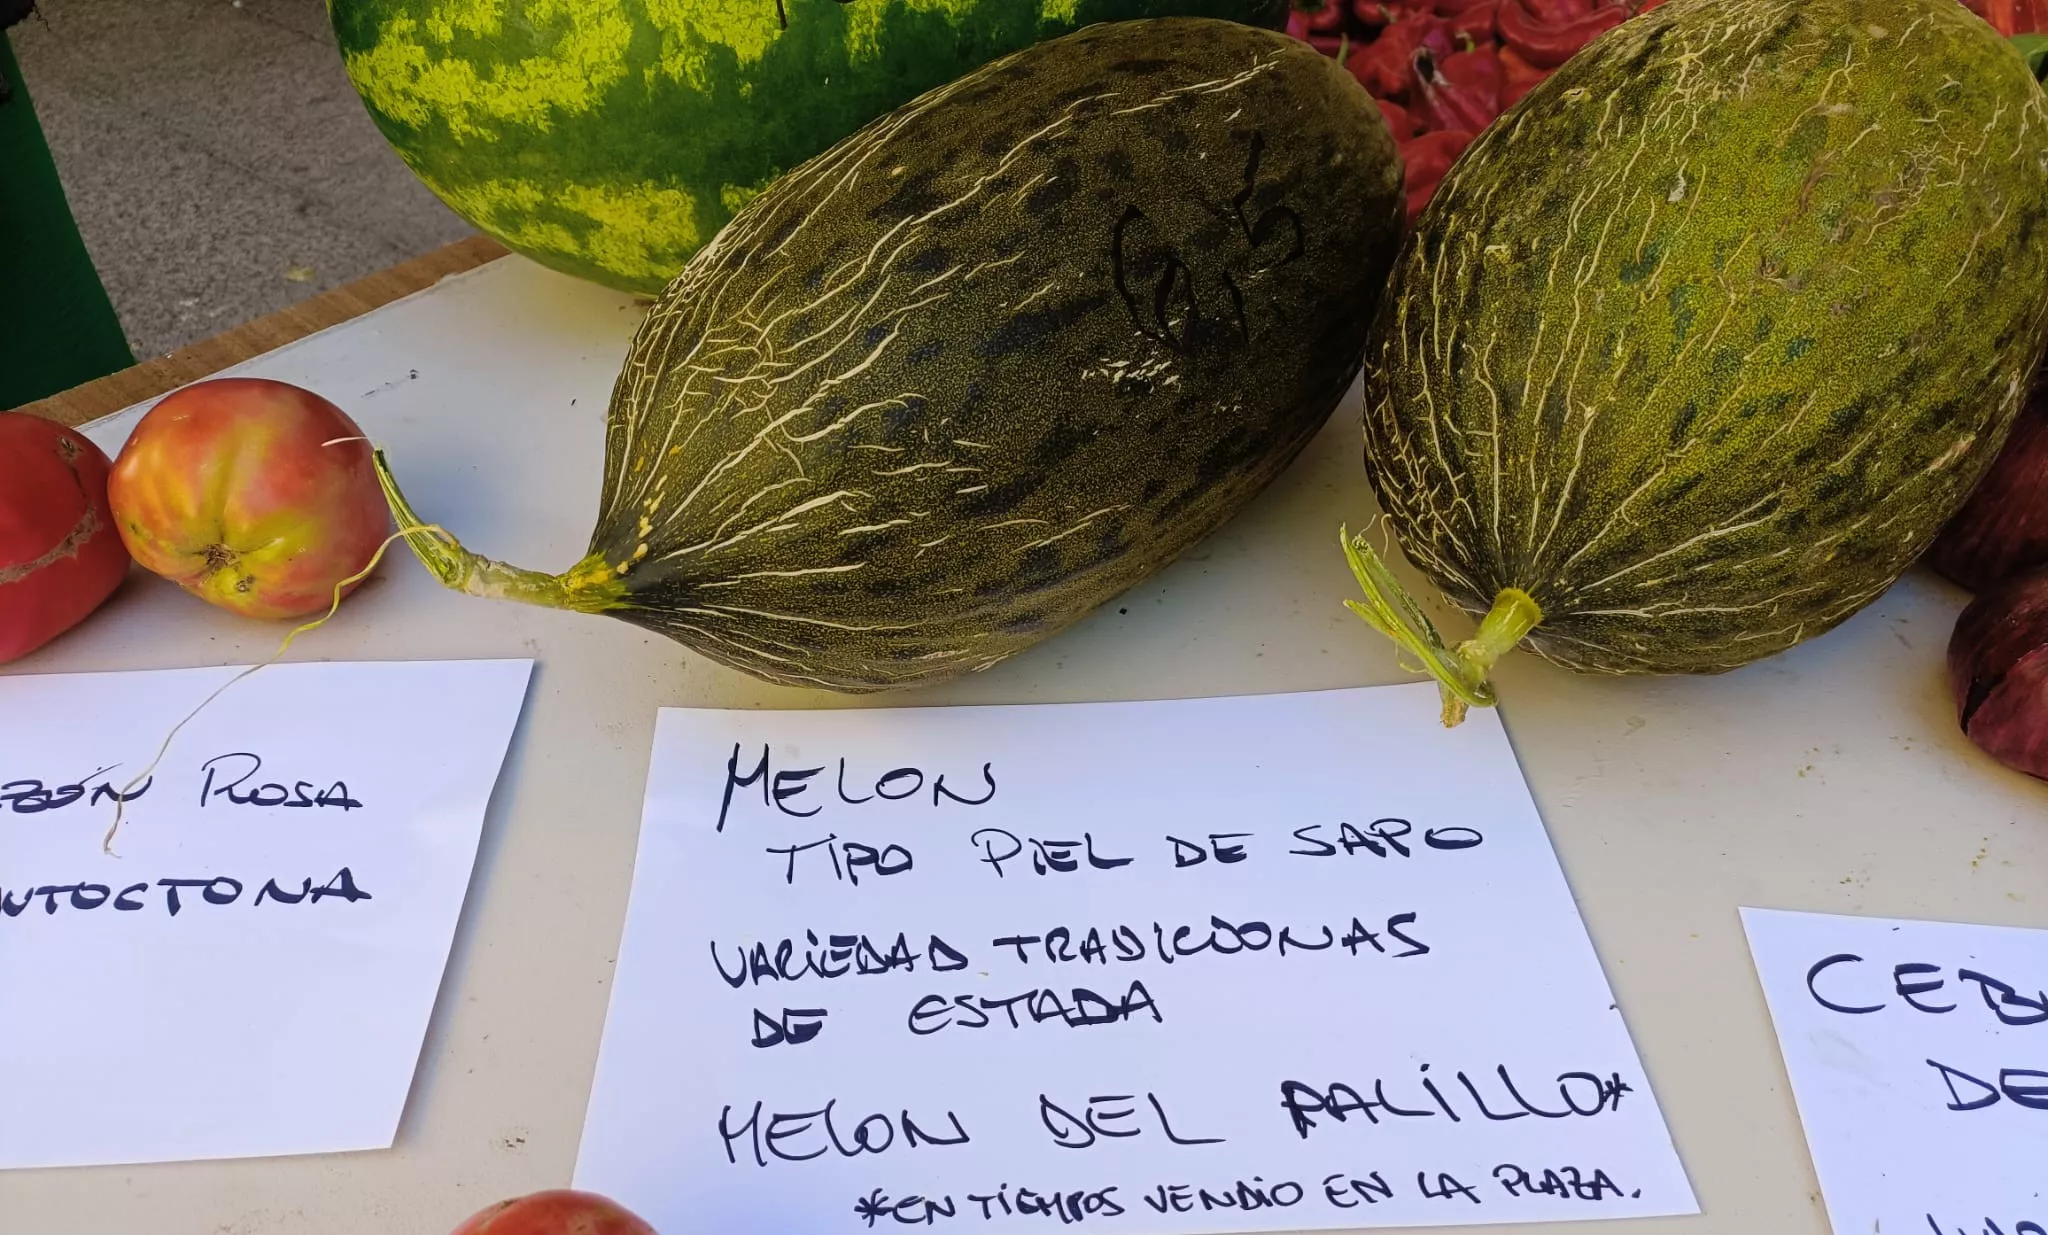 ZÓN ROSA
AUTOCTONA
MELON
TIPO PIEL DE SAPO
VARIEDAD TRADICIONAS
DE ESTADA
MELON DEL PALILLO*
*EN TIEMPOS VENDIO EN LA PLAZA.
CEB
DE
6,5